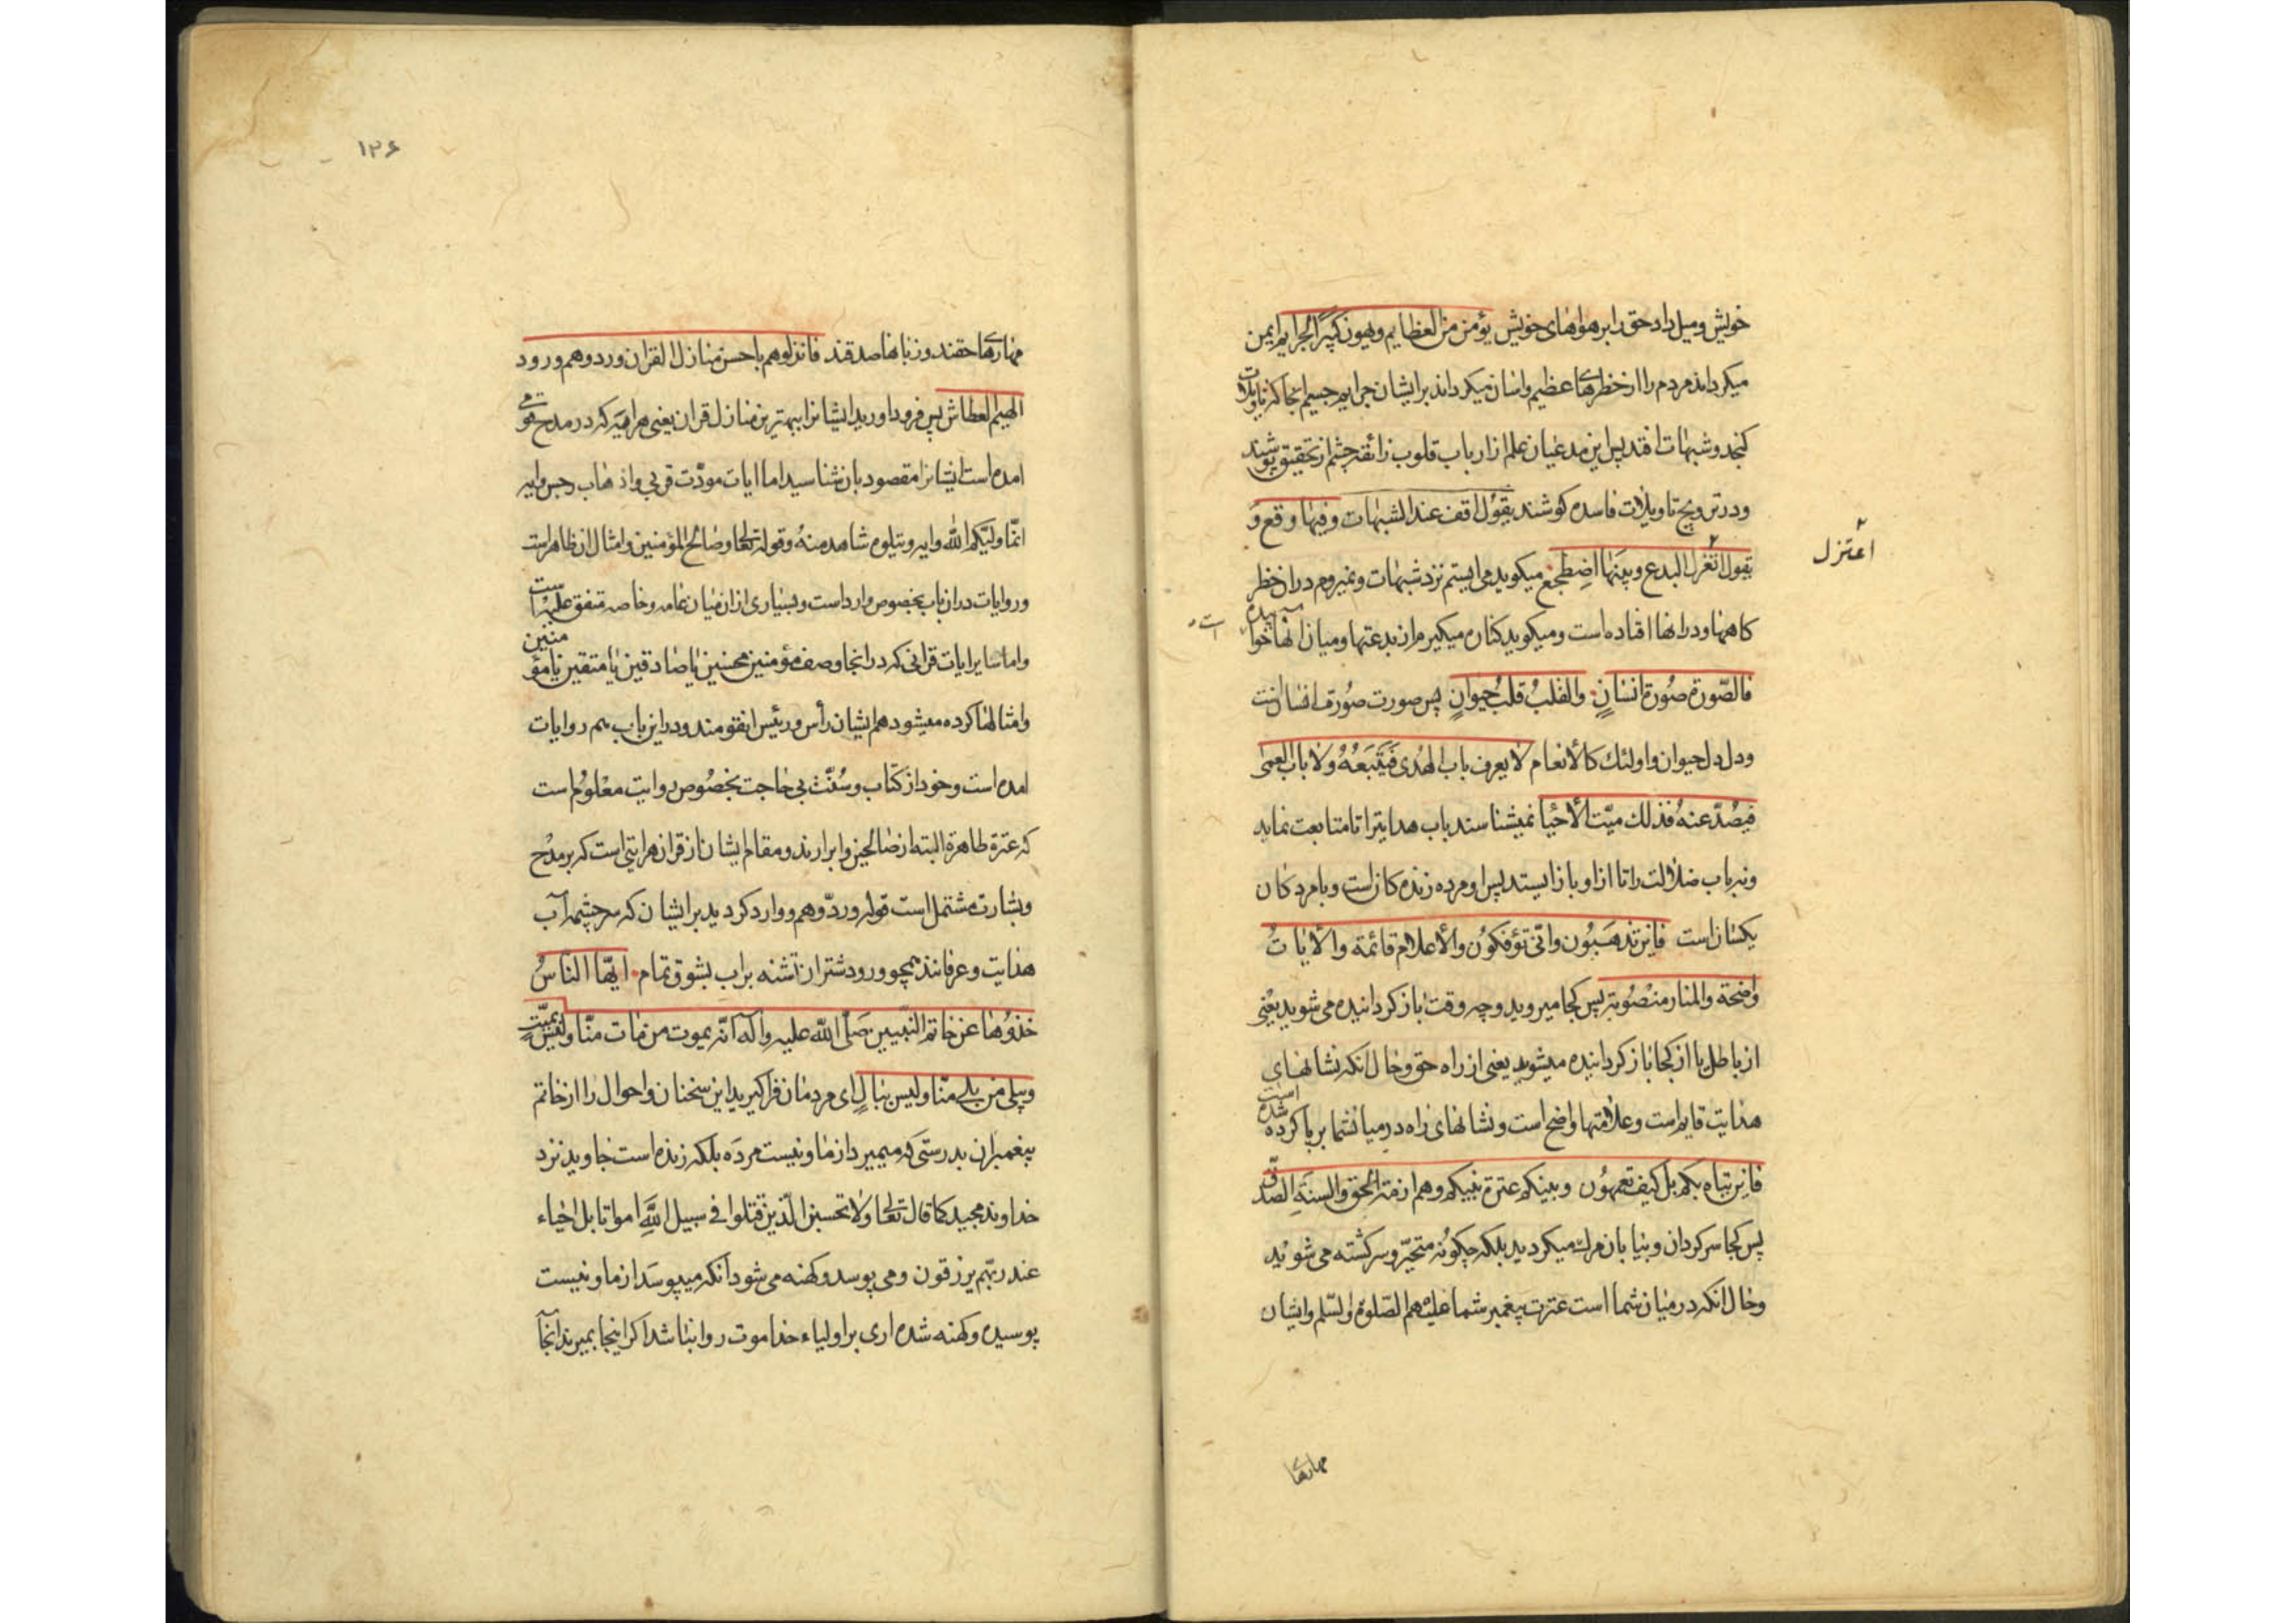 خویش و میل داد حق را بر هواهای خویش یؤمن من العظایم و یهون کبیر الجرایم ایمن
میکرداند مردم را از خطرهای عظیم و اسان میکرداند بر ایشان جرایم جسیم انجا که تاویلات
کنجد و شبهات افتد پس این مدعیان علم از ارباب قلوب زائغه چشم از تحقیق پوشند
و در ترویج تاویلات فاسده کوشند یقول اقف عند الشبهات و فیها وقع و
یقول اتغزل البدع و بینها اضطجع میکوید می ایستم نزد شبهات و نمیروم در ان خطر
اعتزل
کاهها و در انها افتاده است و میکوید کناره میکیرم از بدعتها و میان انها خوابیده
است
فالصّورة صُورة انسانٍ والقلبُ قلبُ حیوانٍ پس صورت صورت انسانست
و دل دل حیوان و اولئك کالأنعام لا یعرف باب الهُدی فَیَتَّبِعُهُ ولا باب العمی
فیصُدّ عنهُ فذلك میّت الأحیا نمیشناسند باب هدایترا تا متابعت نماید
و نه باب ضلالت را تا از او باز ایستد پس او مرده زنده کانست و با مردکان
یکسان است فاین تذهبون وانّی تؤفکوُن والأعلام قائمة والأیاتُ
واضحة والمنار منصُوبة پس کجا میروید و چه وقت باز کردانیده می شوید یعنی
از باطل یا از کجا باز کردانیده میشوید یعنی از راه حق و حال انکه نشانهای
هدایت قایم است و علامتها واضح است و نشانهای راه در میان شما بر پا کرده شده است
فاین یتاه بکم بل کیف تعمهوُن و بینکم عترة نبیکم وهم ازمّة الحق والسنة الصّدق
پس کجا سرکردان و بیابان مرك میکردید بلکه چکونه متحیّر و سرکشته می شوید
و حال انکه در میان شما است عترت پیغمبر شما علیهم الصّلوة والسّلم و ایشان
مهارهای
۱۲۶
مهارهای حقند و زبانها صدقند فانزلوهم باحسن منازل القران وردوهم ورود
الهیم العطاش پس فرود اورید ایشانرا ببهترین منازل قران یعنی هر ایه که در مدح قومی
امده است ایشانرا مقصود بان شناسید اما ایات مودّت قربی و اذهاب رجس و ایه
انّما ولیّکم الله و ایه و یتلوه شاهد منهُ و قوله تعالی و صالح المؤمنین و امثال ان ظاهر است
و روایات در ان باب بخصوص وارد است و بسیاری از ان میان عامه و خاصه متفق علیه است
و اما سایر ایات قرانی که در انجا وصف مؤمنین محسنین یا صادقین یا متقین یا مؤمنین
و امثالها کرده میشود هم ایشان رأس و رئیس انقومند و در این باب هم روایات
امده است و خود از کتاب و سُنّت بی حاجت بخصُوص روایت معلوُم است
که عترة طاهرة البته از صالحین و ابرارند و مقام ایشان از قران هر ایتی است که بر مدح
و بشارت مشتمل است قوله وردّوهم و وارد کردید بر ایشان که سرچشمه آب
هدایت و عرفانند همچو ورود شتران تشنه بر اب بشوق تمام ایّها النّاسُ
خذوُها عن خاتم النبّیین صَلّی اللّه علیه واله انّه یموت من مات منّا ولیس بمیّتٍ
ویبلی من بلی منّا ولیس ببالٍ ای مردمان فرا کیرید این سخنان و احوال را از خاتم
پیغمبران بدرستی که میمیرد از ما و نیست مرده بلکه زنده است جاوید نزد
خداوند مجید کما قال تعالی ولا تحسبنّ الّذین قتلوا فی سبیل اللّه امواتا بل احیاء
عند ربّهم یرزقون و می پوسد و کهنه می شود انکه میپوسَد از ما و نیست
پوسیده و کهنه شده اری بر اولیاء خدا موت روا نباشد اکر اینجا بمیرند انجا